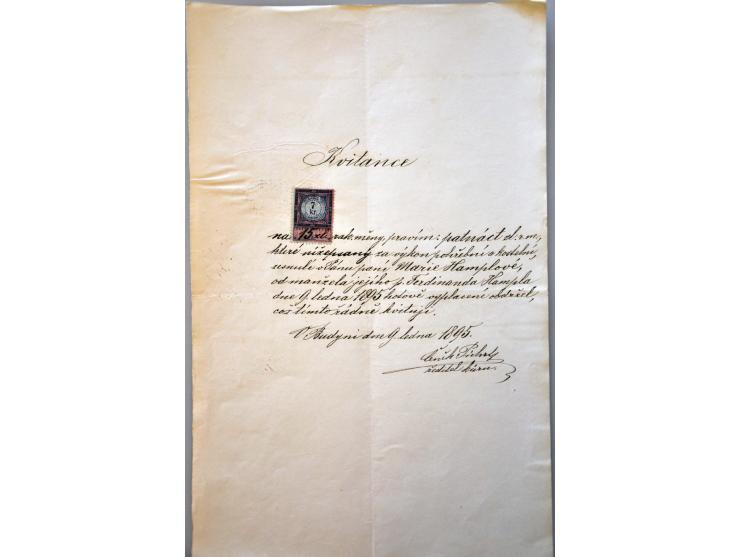 Kvitance
7
kr.
na 15 zl. rak. měny, pravím: patnáct zl. r. m.,
které nížepsaný za výkon pohřební a kostelní,
zesnulé v Pánu paní Marie Hamplové,
od manžela jejího p. Ferdinanda Hampla
dne 9. ledna 1895 hotově vyplacené obdržel,
což tímto řádně kvituje.
V Budyni dne 9. ledna 1895.
Čeněk
ředitel kůru.